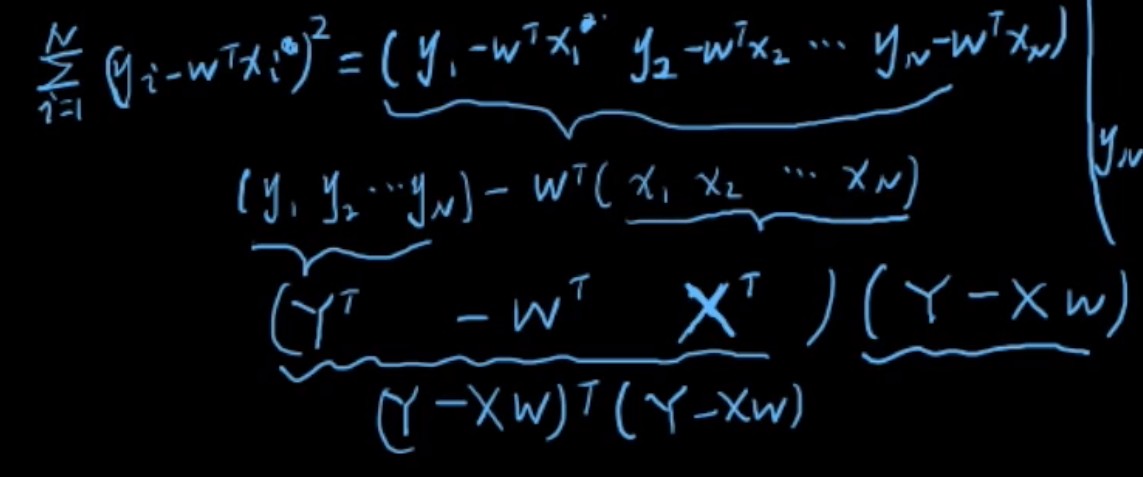 ∑_{i=1}^{N} (y_i - w^T x_i)^2 = (y_1 - w^T x_1 y_2 - w^T x_2 ... y_N - w^T x_N)
y_N
(y_1 y_2 ... y_N) - w^T (x_1 x_2 ... x_N)
(Y^T - w^T X^T) (Y - X w)
(Y - X w)^T (Y - X w)